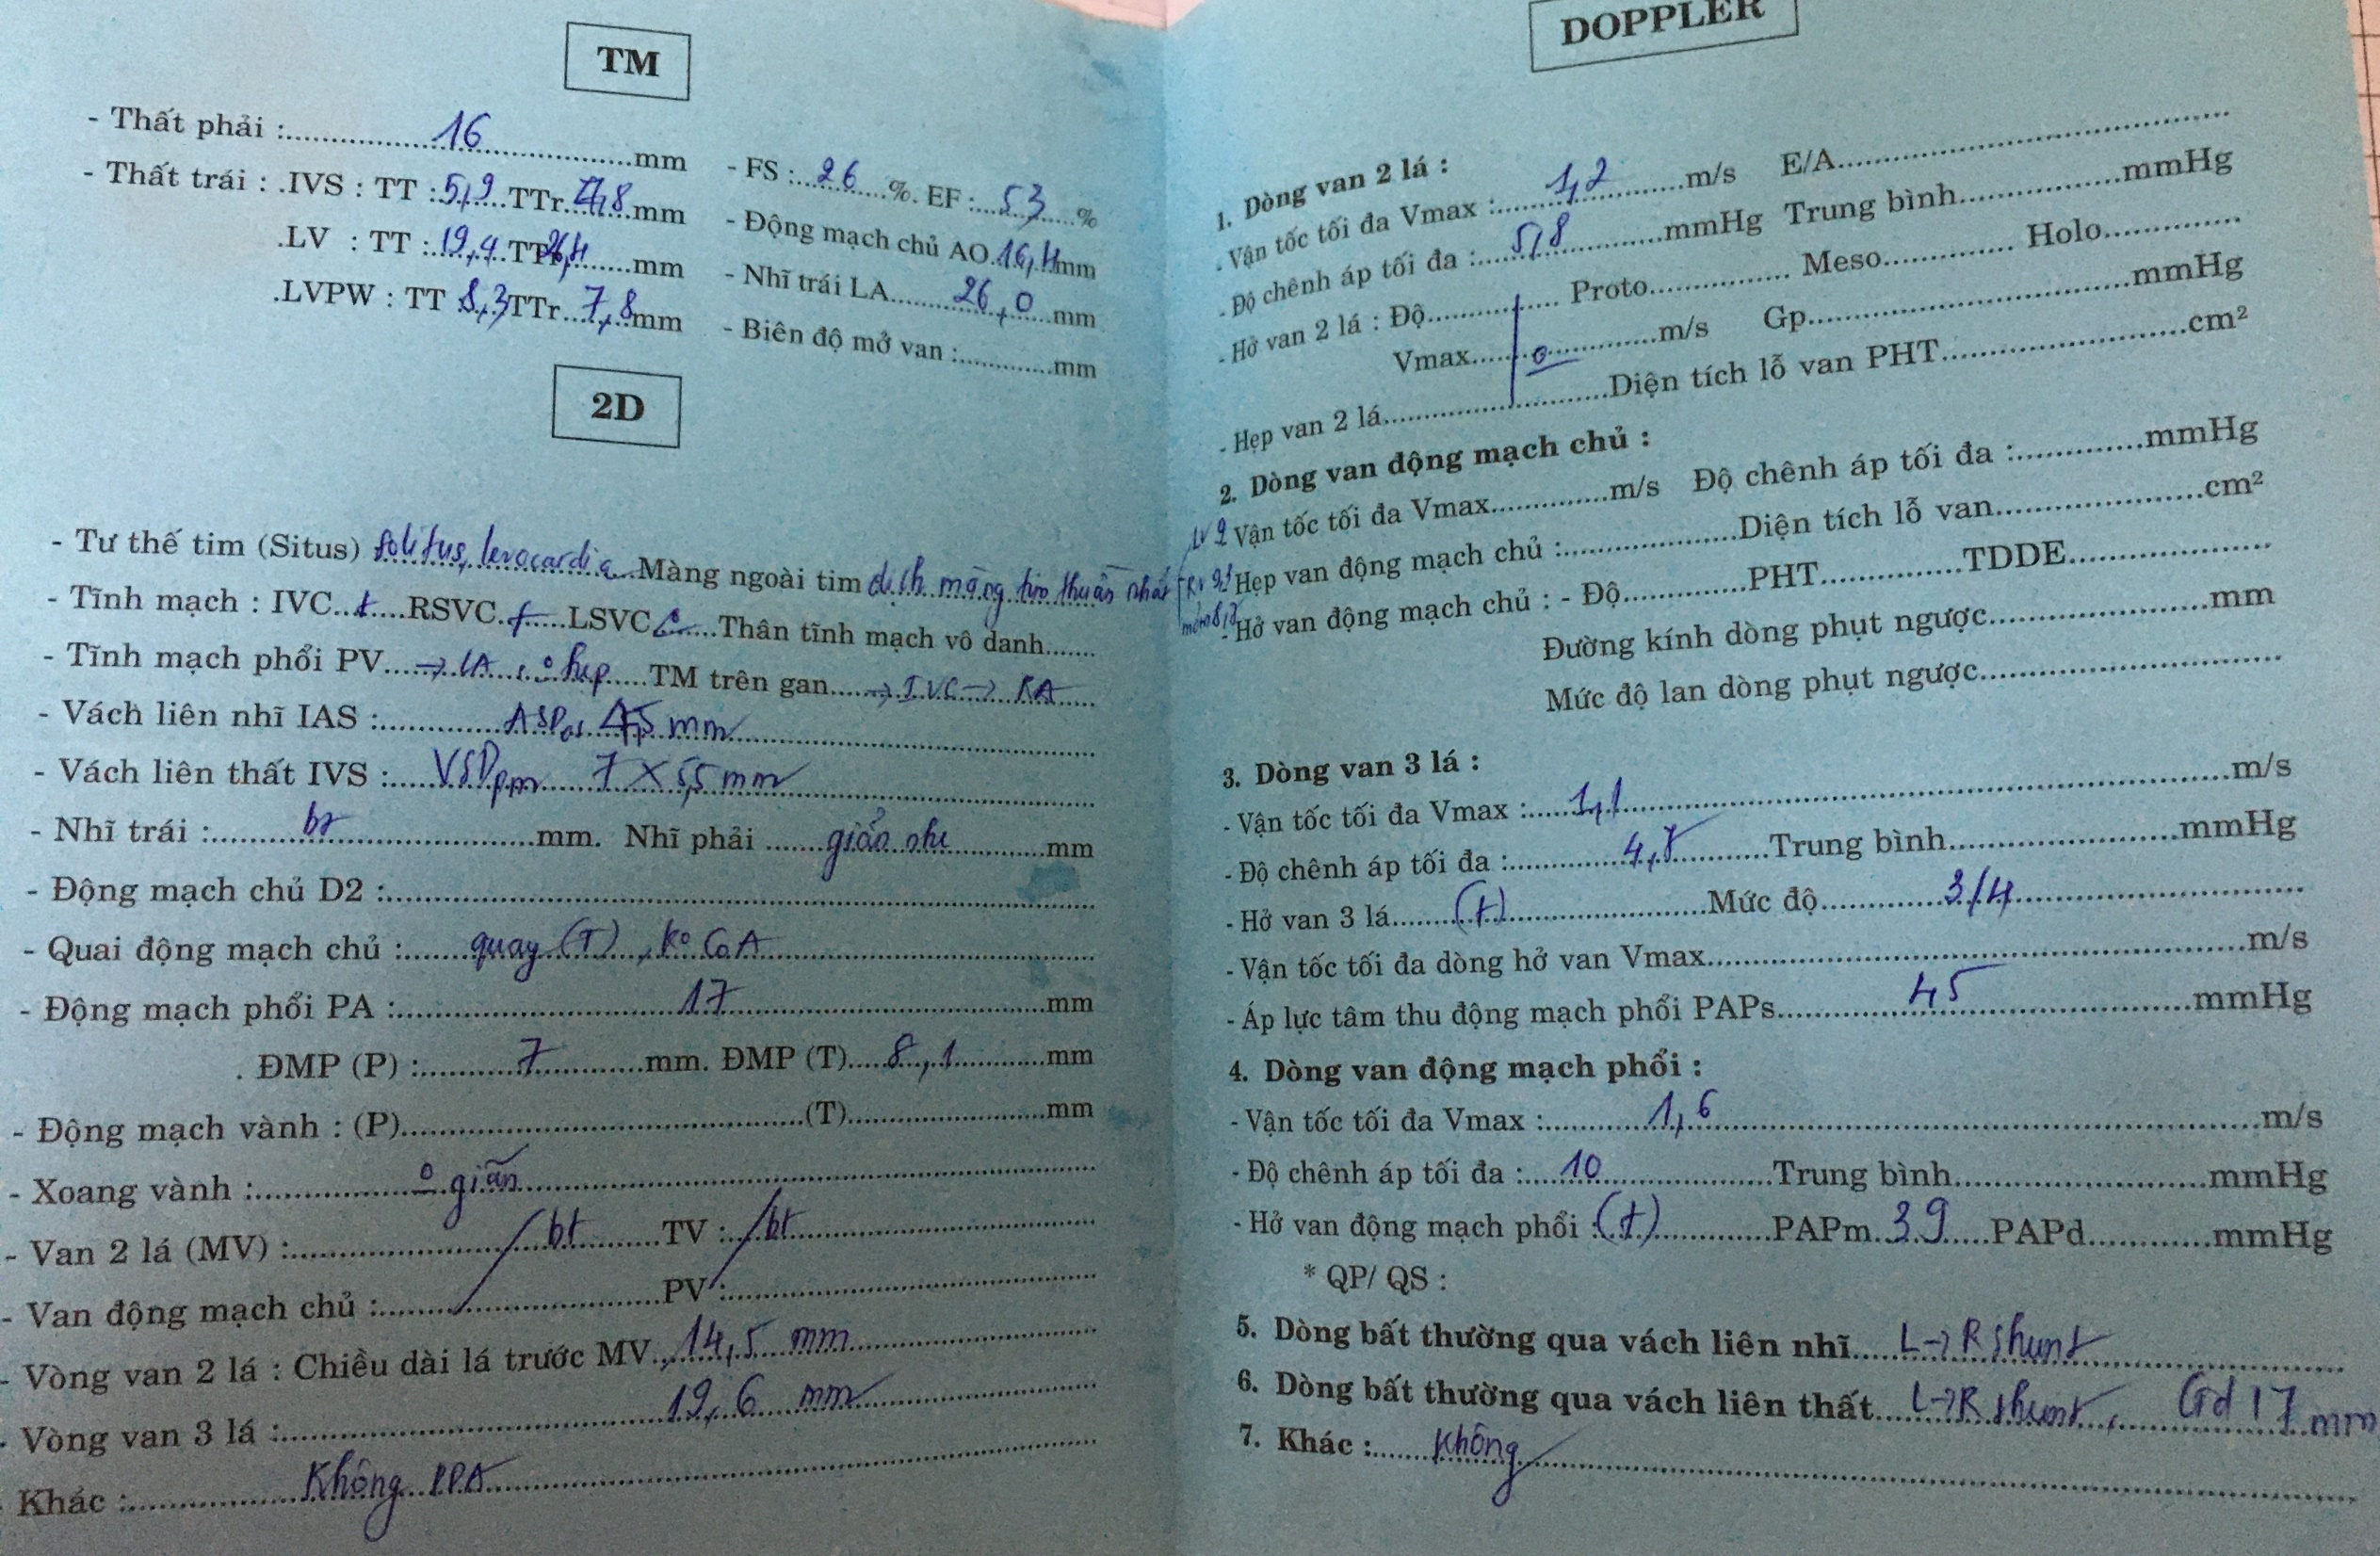 TM
- Thất phải :..........16..........mm
- FS : 26 %. EF : 53 %
- Thất trái : .IVS : TT : 5,9 TTr 4,8 mm
- Động mạch chủ AO 16,4 mm
.LV : TT : 19,4 TTr 26,4 mm
- Nhĩ trái LA 26,0 mm
.LVPW : TT 8,3 TTr 7,8 mm
- Biên độ mở van :............mm
2D
- Tư thế tim (Situs) solitus, levocardia Màng ngoài tim dịch màng tim thuần nhất
- Tĩnh mạch : IVC + RSVC + LSVC Thân tĩnh mạch vô danh.......
- Tĩnh mạch phổi PV → LA, o hẹp TM trên gan → IVC → RA
- Vách liên nhĩ IAS : ASD os 4,5 mm
- Vách liên thất IVS : VSD pm 7 x 5,5 mm
- Nhĩ trái : bt mm. Nhĩ phải giãn nhẹ mm
- Động mạch chủ D2 :
- Quai động mạch chủ : quay (T), Ko CoA
- Động mạch phổi PA : 17 mm
. ĐMP (P) : 7 mm. ĐMP (T) 8,1 mm
- Động mạch vành : (P)..........(T)..........mm
- Xoang vành : o giãn
- Van 2 lá (MV) : bt TV : bt
- Van động mạch chủ : PV :
- Vòng van 2 lá : Chiều dài lá trước MV 14,5 mm
- Vòng van 3 lá : 19,6 mm
Khác : Không
DOPPLER
1. Dòng van 2 lá :
- Vận tốc tối đa Vmax : 1,2 m/s E/A
- Độ chênh áp tối đa : 5,8 mmHg Trung bình mmHg
- Hở van 2 lá : Độ Proto Meso Holo
Vmax o m/s Gp mmHg
- Hẹp van 2 lá Diện tích lỗ van PHT cm²
2. Dòng van động mạch chủ :
- Vận tốc tối đa Vmax m/s Độ chênh áp tối đa : mmHg
- Hẹp van động mạch chủ : Diện tích lỗ van cm²
- Hở van động mạch chủ : - Độ PHT TDDE
Đường kính dòng phụt ngược mm
Mức độ lan dòng phụt ngược
3. Dòng van 3 lá :
- Vận tốc tối đa Vmax : 1,1 m/s
- Độ chênh áp tối đa : 4,8 Trung bình mmHg
- Hở van 3 lá (+) Mức độ 3/4
- Vận tốc tối đa dòng hở van Vmax m/s
- Áp lực tâm thu động mạch phổi PAPs 45 mmHg
4. Dòng van động mạch phổi :
- Vận tốc tối đa Vmax : 1,6 m/s
- Độ chênh áp tối đa : 10 Trung bình mmHg
- Hở van động mạch phổi : (+) PAPm 39 PAPd mmHg
* QP/ QS :
5. Dòng bất thường qua vách liên nhĩ L→R shunt
6. Dòng bất thường qua vách liên thất L→R shunt, Gd 17 mm
7. Khác : Không